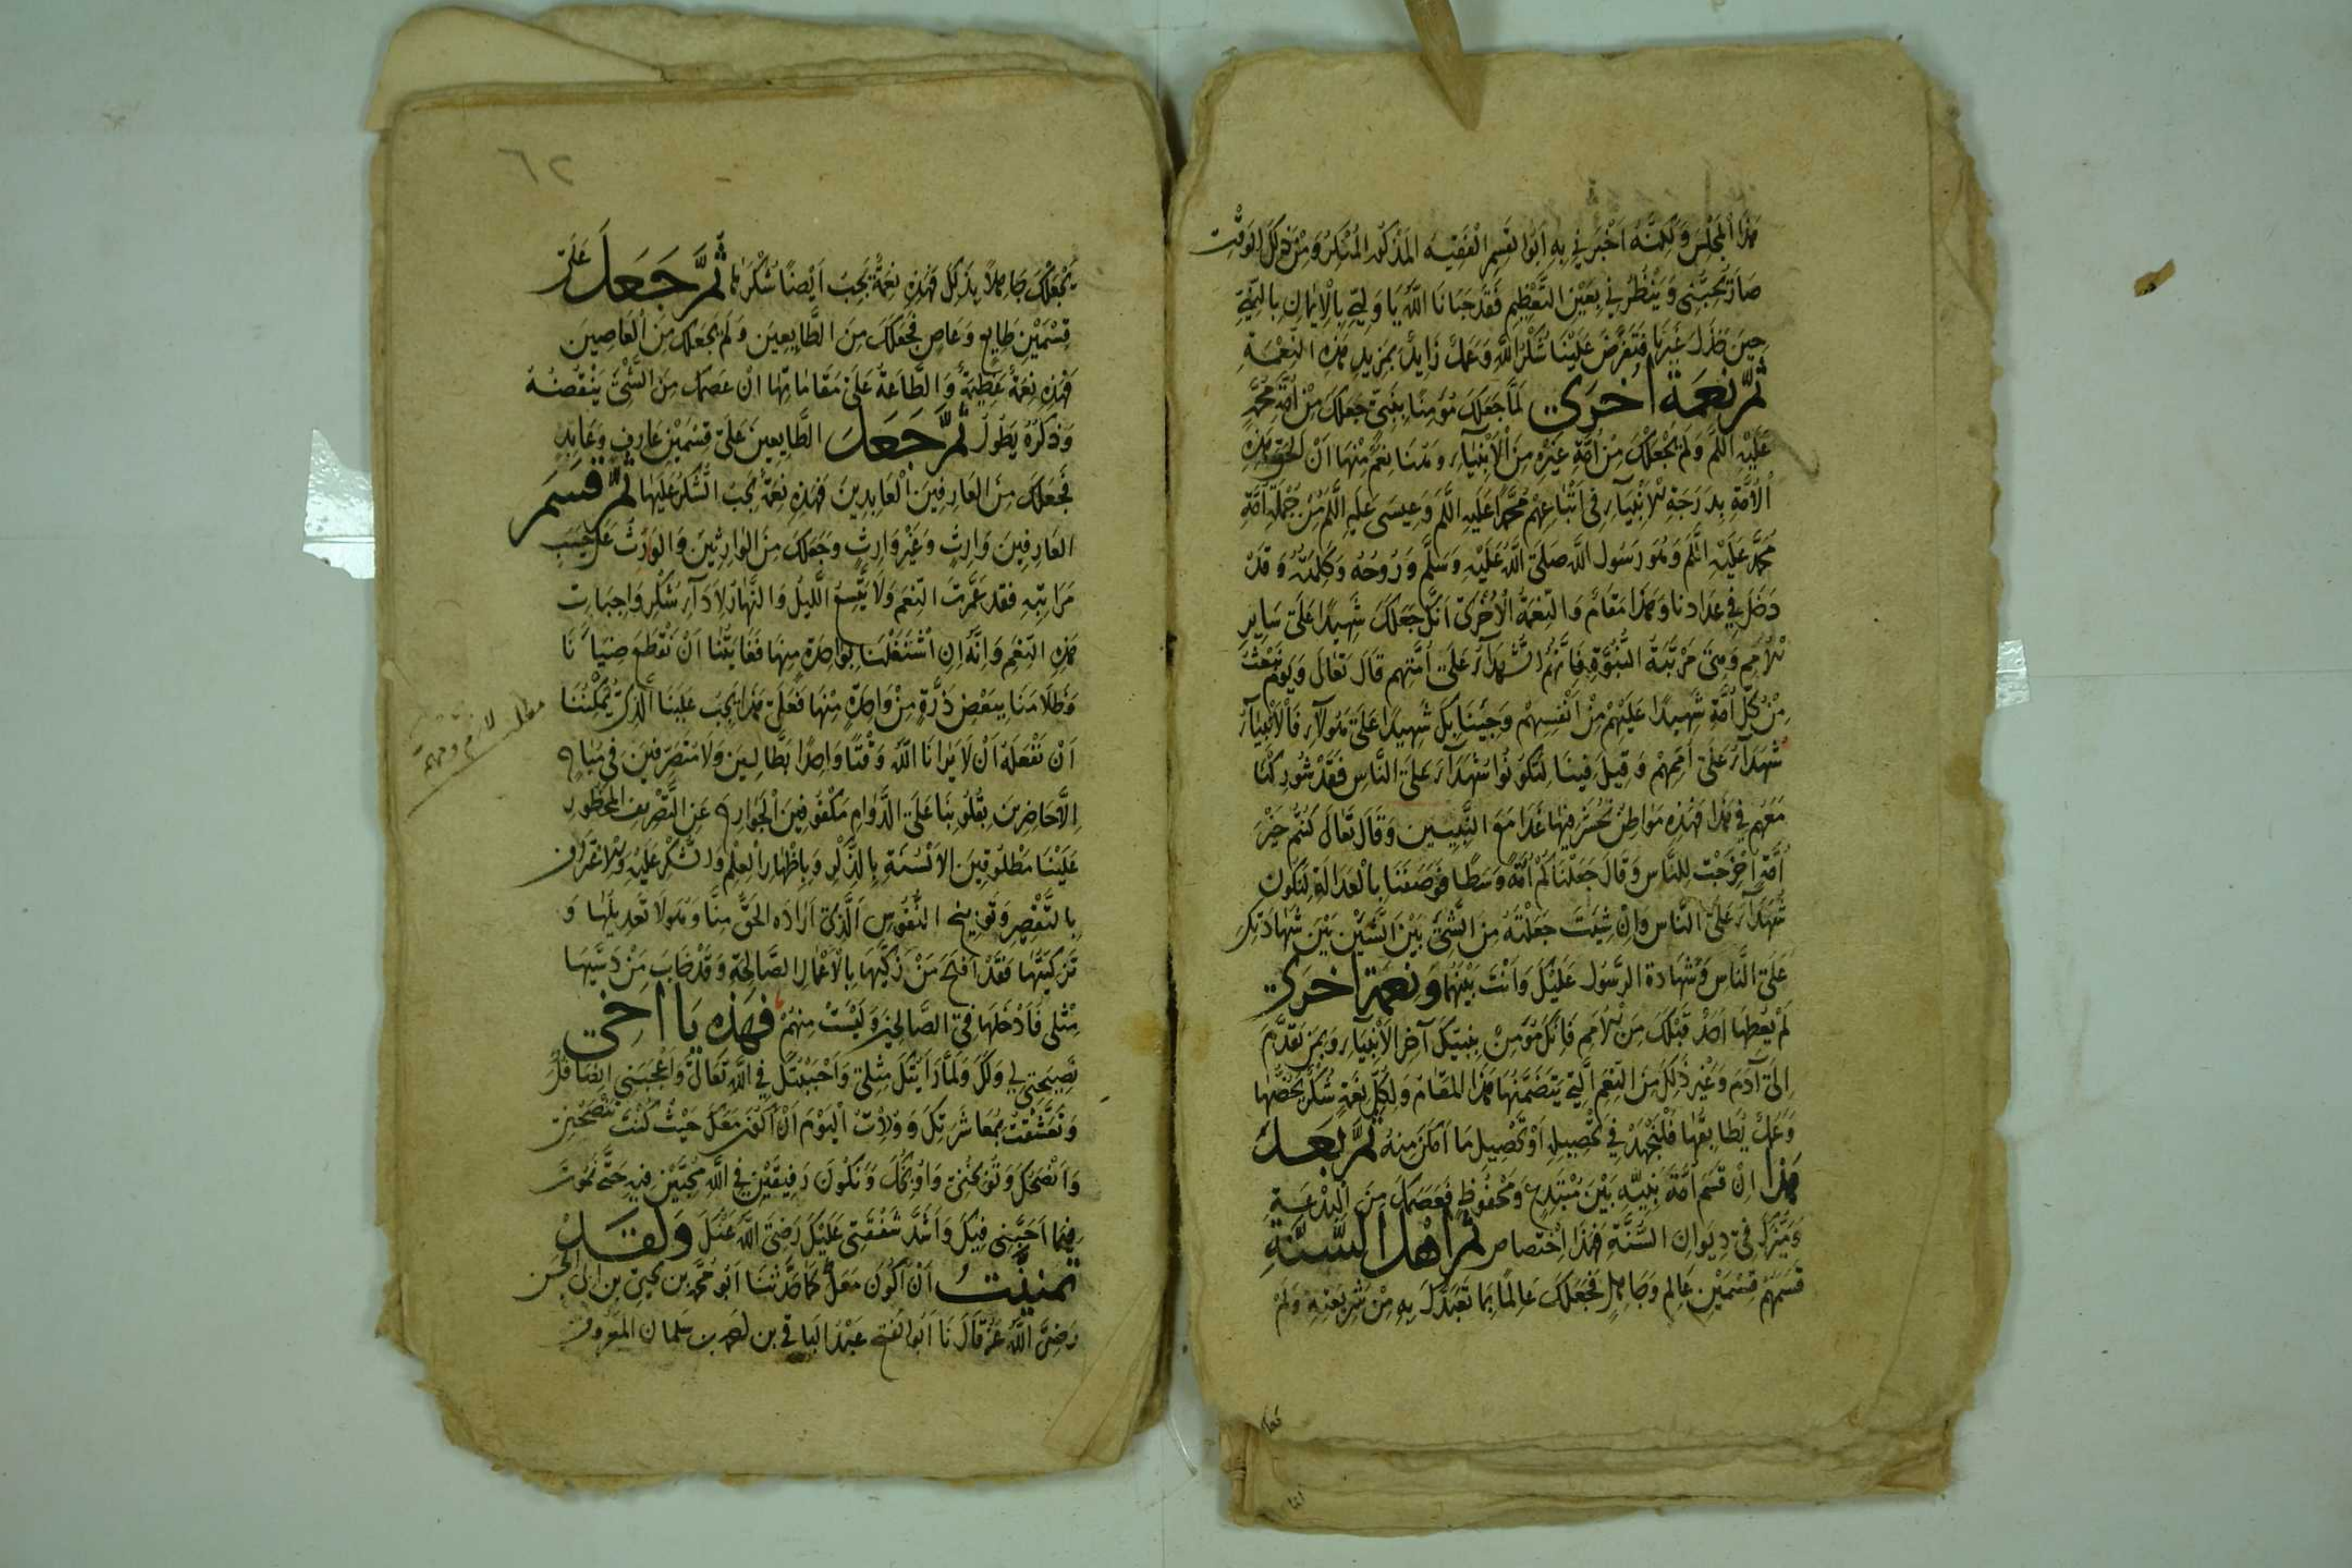 هذا المجلس ولكنه اخبرني به ابوا لقسم الفقيه المذكور المنكر ومن ذلك الوقت
صار يحبني وينظر في بعين التعظيم فقد حبانا الله يا وليي بالايمان بالنبي
حين خذل غيرنا فتعرض علينا شكر الله وعمل زايد بمزيد هذه النعمة
ثم نعمة اخرى لما جعلك مؤمنا بنبي جعلك من امة محمد
عليه السلم ولم يجعلك من امة غيره من الانبياء وهنا نعم منها ان الحق هذه
الامة بدرجة الانبياء في اتباعهم محمدا عليه السلم وعيسى عليه السلم من جملة امة
محمد عليه السلم وهو رسول الله صلى الله عليه وسلم وروحه وكلمته وقد
دخل في عدادنا وهذا مقام والنعمة الاخرى انك جعلك شهيدا على ساير
الامم وهي مرتبة النبوة فانهم الشهداء على امتهم قال تعالى ويوم نبعث
من كل امة شهيدا عليهم من انفسهم وجينا بك شهيدا على هولاء فالانبياء
شهداء على اممهم وقيل فينا لتكونوا شهداء على الناس فقد شوركنا
معهم في هذا فهذه مواطن نحشر فيها غدا مع النبيين وقال تعالى كنتم خير
امة اخرجت للناس وقال جعلناكم امة وسطا فوصفنا بالعدالة لتكون
شهداء على الناس وان شيت جعلته من الشي بين الشيين بين شهادتك
على الناس وشهادة الرسول عليك وانت بينهما ونعمة اخرى
لم يعطها احد قبلك من الامم فانك مؤمن بنبيك آخر الانبياء وبمن تقدم
الى آدم وغير ذلك من النعم التي يتضمنها هذا المقام ولكل نعمة شكر يخصها
وعمل يطابقها فلنجهد في تحصيله او تحصيل ما امكن منه ثم بعد
هذا ان قسم امة نبيه بين مبتدع ومحفوظ فعصمك من البدعة
وميزك في ديوان السنة فهذا اختصاص ثم اهل السنة
قسمهم قسمين عالم وجاهل فجعلك عالما بما تعبدك به من شريعته ولم
٦٢
يجعلك جاهلا بذلك فهذه نعمة يجب ايضا شكرها ثم جعل على
قسمين طايع وعاص فجعلك من الطايعين ولم يجعلك من العاصين
فهذه نعمة عظيمة والطاعة على مقاماتها ان عصمك من الشي ينقصنه
وذكره يطول ثم جعل الطايعين على قسمين عارف وعابد
فجعلك من العارفين العابدين فهذه نعمة يجب الشكر عليها ثم قسم
العارفين وارث وغير وارث وجعلك من الوارثين والوارث على حسب
مراتبه فقد عمرت النعم ولا يتسع الليل والنهار لاداء شكر واجبات
هذه النعم وانه ان اشتغلنا بواحدة منها فغايتنا ان نقطع ضياءنا
وظلامنا ببعض ذرة من واحدة منها فعلى هذا يجب علينا الذي يمكننا
ان نفعله ان لا يرانا الله وقتا واحدا بطالين ولا متصرفين في مباح
الا حاضرين بقلوبنا على الدوام مكفوفين الجوارح عن التصريف المحظور
علينا مطلوقين الالسنة بالذكر وباظهار العلم والشكر عليه والاعتراف
بالتقصير وتوبيخ النفوس الذي اراده الحق منا وهولا تعديلها و
تزكيتها فقد افلح من زكيها بالاعمال الصالحة وقد خاب من دسيها
مثلي فادخلها في الصالحين وليست منهم فهذه يا اخي
نصيحتي لي ولك ولما رايتك مثلي واحببتك في الله تعالى واعجبني ايضا فيك
وتعشقت بمعاشرتك ووددت اليوم ان اكون معك حيث كنت تنصحني
وانصحك وتوبخني واوبخك ونكون رفيقين في الله محبين فيه حتى نموت
فما احبني فيك واشد شفقتي عليك رضي الله عنك ولقد
تمنيت ان اكون معك كما حدثنا ابو محمد بن يحيى بن ابي الحسن
رضي الله عنه قال نا ابو الفتح عبد الباقي بن احمد بن سلمان المعروف
مطلب لازم ومهم